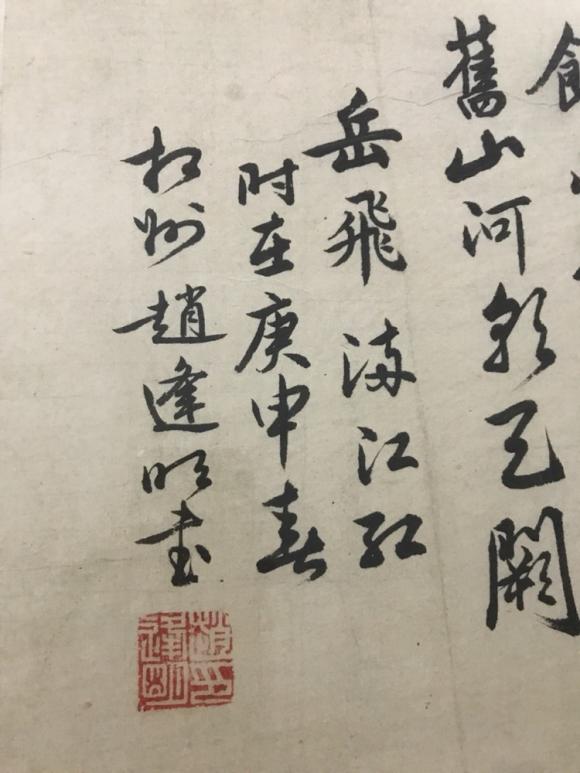 舊山河朝天闕
岳飛 滿江紅
时在庚申春
相州趙逢明書
趙印逢明